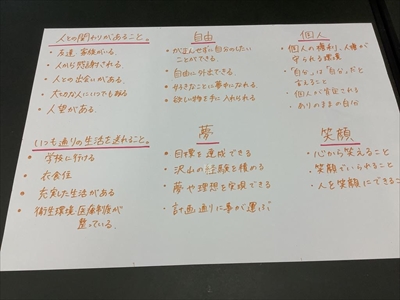 人との関わりがあること。
・友達、家族がいる。
・人から感謝される。
・人との出会いがある。
・大切な人にいつでも頼る
・人望がある。
自由
・がまんせずに自分のしたい
ことができる。
・自由に外出できる。
・好きなことに夢中になれる。
・欲しい物を手に入れられる
個人
・個人の権利、人権が
守られる環境
・「自分」は「自分」だと
言えること
・個人が肯定される
・ありのままの自分
いつも通りの生活を送れること。
・学校に行ける
・衣食住
・充実した生活がある
・衛生環境・医療制度が
整っている。
夢
・目標を達成できる
・沢山の経験を積める
・夢や理想を実現できる
・計画通りに事が運ぶ
笑顔
・心から笑えること
・笑顔でいられること
・人を笑顔にできるこ